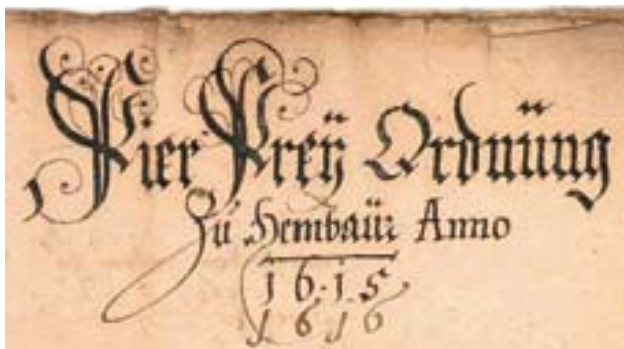 Pier Preÿ Ordnüng
Zú Hembaür Anno
1 6 . 1 5
1 6 1 6